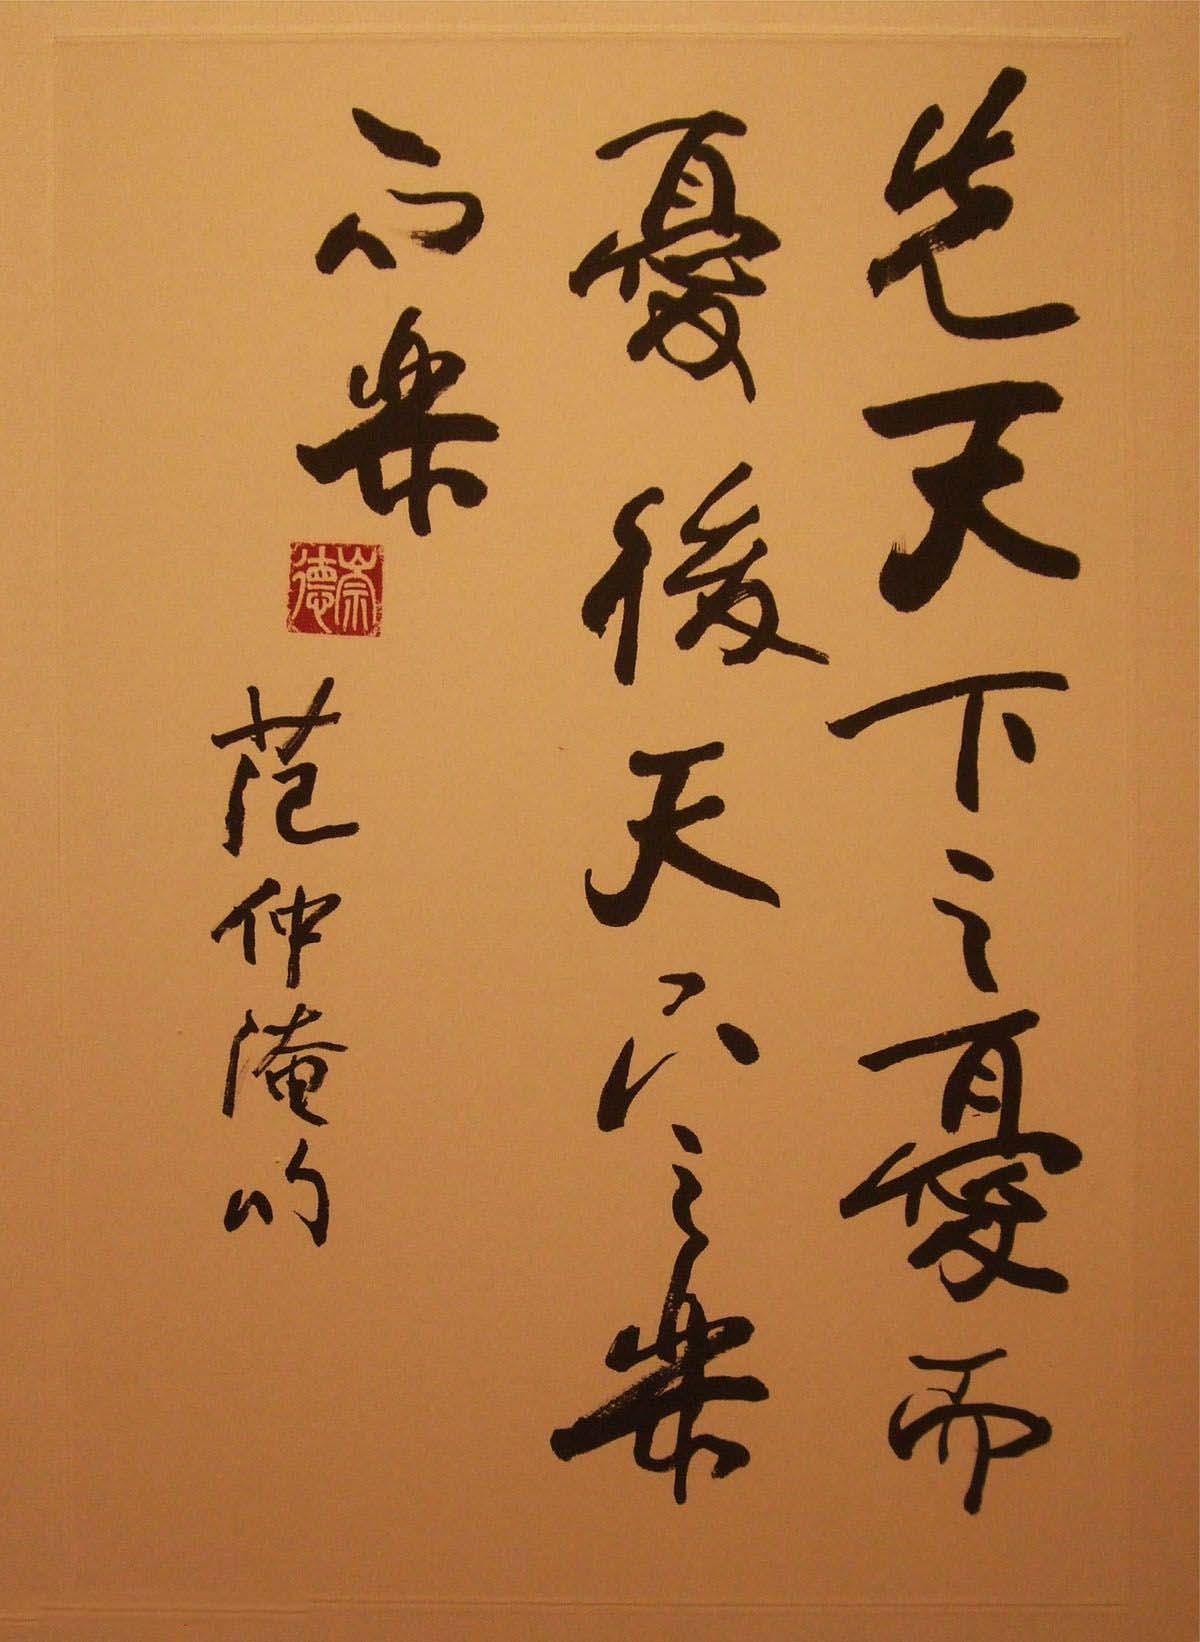 先天下之憂而
憂後天下之樂
而樂
崇德
范仲淹句